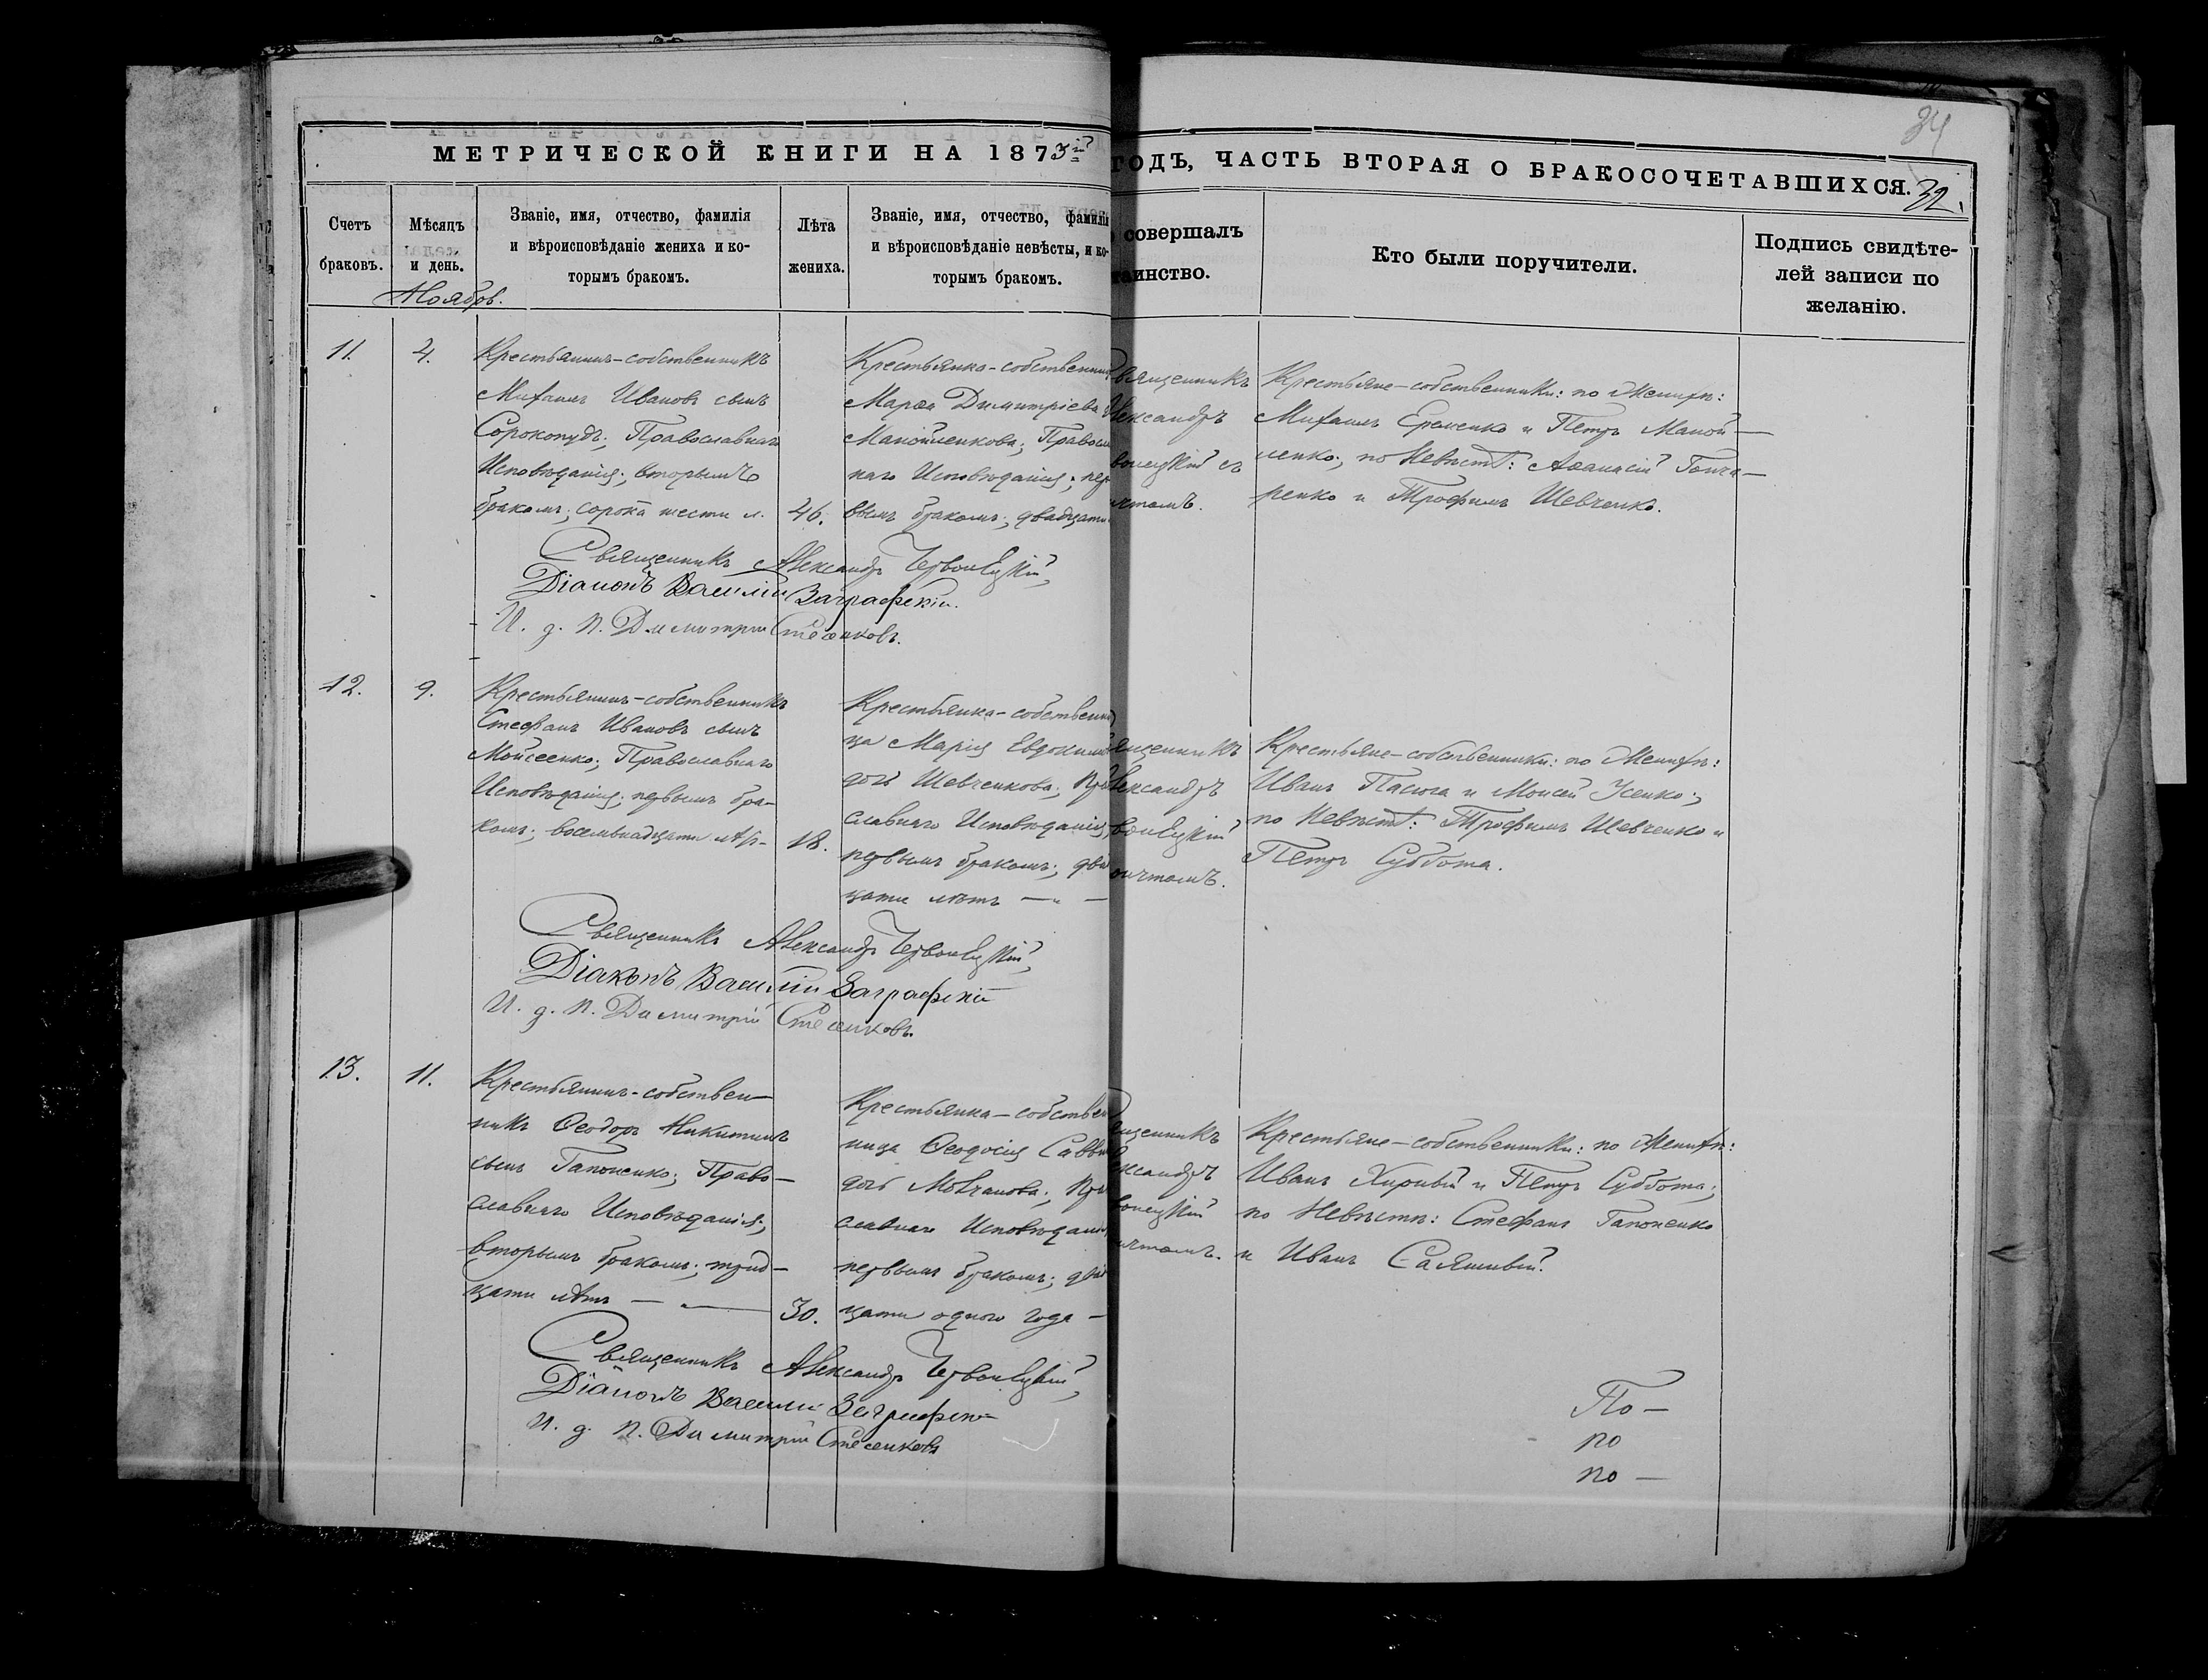 34
МЕТРИЧЕСКОЙ КНИГИ НА 1873й
ГОДЪ, ЧАСТЬ ВТОРАЯ О БРАКОСОЧЕТАВШИХСЯ.
32.
Счетъ браковъ.
Мѣсяцъ и день.
Званіе, имя, отчество, фамилія
и вѣроисповѣданіе жениха и ко-
торымъ бракомъ.
Лѣта жениха.
Званіе, имя, отчество, фамилія
и вѣроисповѣданіе невѣсты, и ко-
торымъ бракомъ.
совершалъ
таинство.
Кто были поручители.
Подпись свидѣте-
лей записи по
желанію.
Ноябрь.
11.
4.
Крестьянинъ-собственникъ
Михаилъ Ивановъ сынъ
Сорокопудъ; Православнаго
Исповѣданія; вторымъ
бракомъ; сорока шести л.
46.
Крестьянка-собственни
Марѳа Димитріева
Манойленкова; Правосл
наго Исповѣданія; пер
вымъ бракомъ; двадцати
вященникъ
лександръ
вонецкій съ
ичтомъ.
Крестьяне-собственники: по Женихѣ:
Михаилъ Еременко и Петръ Маной-
ленко; по Невѣстѣ: Аѳанасій Гонча-
ренко и Трофимъ Шевченко.
Священникъ Александръ
Діаконъ Василій Заграфскій.
И. д. п. Димитрій
12.
9.
Крестьянинъ-собственникъ
Стефанъ Ивановъ сынъ
Мойсеенко; Православнаго
Исповѣданія; первымъ бра-
комъ; восемьнадцати лѣт-
18.
Крестьянка-собственни
ца Марія Евдоким
дочь Шевченкова; Пра
славнаго Исповѣданія;
первымъ бракомъ; два
цати лѣтъ — " —
ященникъ
лександръ
вонецкій
ичтомъ.
Крестьяне-собственники: по Женихѣ:
Иванъ Пасюга и Моисей Усенко;
по Невѣстѣ: Трофимъ Шевченко и
Петръ Суббота.
Священникъ Александръ
Діаконъ Василій Заграфскій
И. д. п. Димитрій
13.
11.
Крестьянинъ-собствен-
никъ Ѳеодоръ Никитинъ
сынъ Гапоненко; Право-
славнаго Исповѣданія;
вторымъ бракомъ; трид-
цати лѣтъ — " —
30.
Крестьянка-собствен
ница Ѳеодосія Савви
дочь Мовчанова; Пра
славнаго Исповѣдані
первымъ бракомъ; два
цати одного года —
ященникъ
ександръ
вонецкій
ичтомъ.
Крестьяне-собственники: по Женихѣ:
Иванъ Хиривій и Петръ Суббота;
по Невѣстѣ: Стефанъ Гапоненко
и Иванъ
Священникъ Александръ
Діаконъ Василій Заграфскій
И. д. п. Димитрій
По —
по
по —